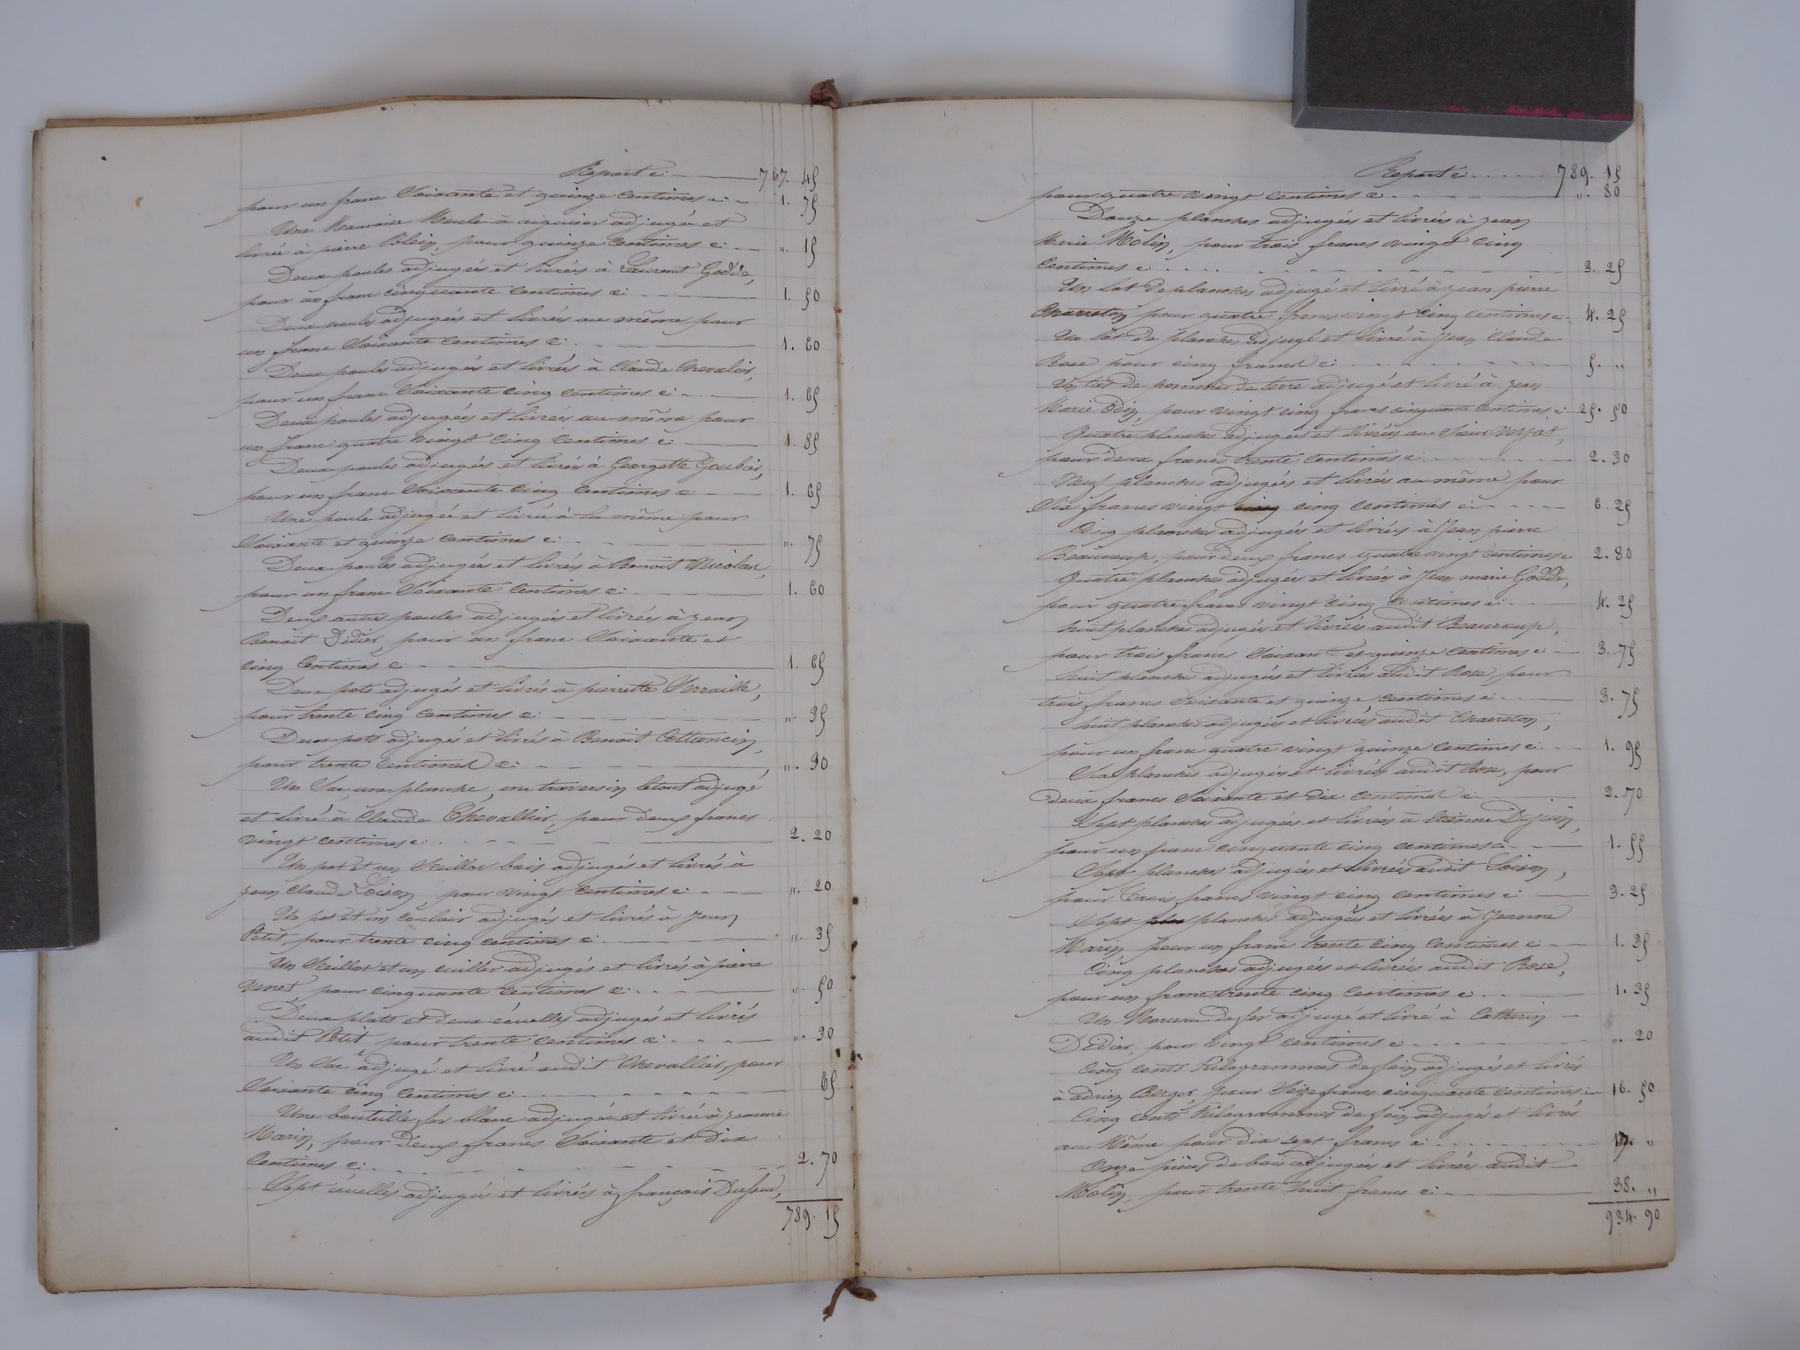 Report c: 767. 45
pour un franc Soixante et quinze Centimes c: 1. 75
Une Mauvaise Meule à aiguiser adjugée et
livrée à pierre Blein, pour quinze Centimes c: „. 15
Deux poules adjugées et livrées à Laurent Godde,
pour un franc cinquante Centimes c: 1. 50
Deux poules adjugées et livrées au même pour
un franc Soixante Centimes c: 1. 60
Deux poules adjugées et livrées à Claude Chevalier,
pour un franc Soixante cinq Centimes c: 1. 65
Deux poules adjugées et livrées au même pour
un franc quatre vingt cinq Centimes c: 1. 85
Deux poules adjugées et livrées à Georgette Goubier,
pour un franc Soixante cinq Centimes c: 1. 65
Une poule adjugée et livrée à la même pour
Soixante et quinze Centimes c: „. 75
Deux poules adjugées et livrées à Benoit
pour un franc Soixante Centimes c: 1. 60
Deux autres poules adjugées et livrées à jean
Benoit Didier, pour un franc Soixante et
cinq Centimes c: 1. 65
Deux pots adjugés et livrés à pierrette
pour trente cinq Centimes c: „. 35
Deux pots adjugés et livrés à Benoit Cottancin,
pour trente Centimes c: „. 30
Un Sac, une planche, un traversin letout adjugé
et livré à Claude Chevallier, pour deux francs
vingt centimes c: 2. 20
Un pot et un Seillot bois adjugés et livrés à
jean Claude Loison, pour vingt Centimes c: „. 20
Un pot et un couloir adjugés et livrés à Jean
Petit, pour trente cinq centimes c: „. 35
Un Seillot et un cuiller adjugés et livrés à pierre
Venet, pour cinquante centimes c: „. 50
Deux plats et deux écuelles adjugés et livrés
audit Petit pour trente centimes c: „. 30
Un Sac adjugé et livré audit Chevallier, pour
Soixante cinq Centimes c: 65
Une bouteille fer blanc adjugée et livré à jeanne
Marin, pour Deux francs Soixante et Dix
Centimes c: 2. 70
Sept écuelles adjugées et livrées à françois
789. 15
Report c: 789. 15
pour quatre vingt centimes c: „. 80
Douze planches adjugées et livrées à jean
Marie Molin, pour trois francs vingt cinq
Centimes c: 3. 25
Un lot de planches adjugé et livré à jean pierre
Charreton pour quatre francs vingt cinq centimes c: 4. 25
Un lot de planches adjugé et livré à Jean Claude
Rose pour cinq francs c: 5. „
Un tas de pommes de terre adjugé et livré à jean
Marie Odin, pour vingt cinq francs cinquante centimes c: 25. 50
Quatre planches adjugées et livrées au Sieur
pour deux francs trente centimes c: 2. 30
Neuf planches adjugées et livrées au même pour
Six francs vingt cinq centimes c: 6. 25
Cinq planches adjugées et livrées à Jean pierre
Beaucoup, pour deux francs quatre vingt centimes c: 2. 80
Quatre planches adjugées et livrées à Jean marie Godde,
pour quatre francs vingt cinq centimes c: 4. 25
huit planches adjugées et livrées audit Beaucoup,
pour trois francs Soixante et quinze Centimes c: 3. 75
huit planches adjugées et livrées audit Rose, pour
trois francs Soixante et quinze centimes c: 3. 75
huit planches adjugées et livrées audit Charreton,
pour un franc quatre vingt quinze Centimes c: 1. 95
Six planches adjugées et livrées audit Rose, pour
deux francs Soixante et dix centimes c: 2. 70
Sept planches adjugées et livrées à Etienne
pour un franc cinquante cinq centimes c: 1. 55
Sept planches adjugées et livrées audit Loison,
pour Trois francs vingt cinq centimes c: 3. 25
Sept planches adjugées et livrées à Jeanne
Marin pour un franc trente cinq Centimes c: 1. 35
Cinq planches adjugées et livrées audit Rose,
pour un franc trente cinq Centimes c: 1. 35
Un Morceau de fer adjugé et livré à Catherin
Dédier, pour vingt centimes c: „. 20
Cinq cents Kilogrammes de foin adjugés et livrés
à adrien Berger pour Seize francs cinquante centimes c: 16. 50
Cinq cents Kilogrammes de foin adjugés et livrés
au Même pour dix sept francs c: 17. „
Onze pièces de bois adjugées et livrées audit
Molin, pour trente huit francs c: 38. „
934. 90